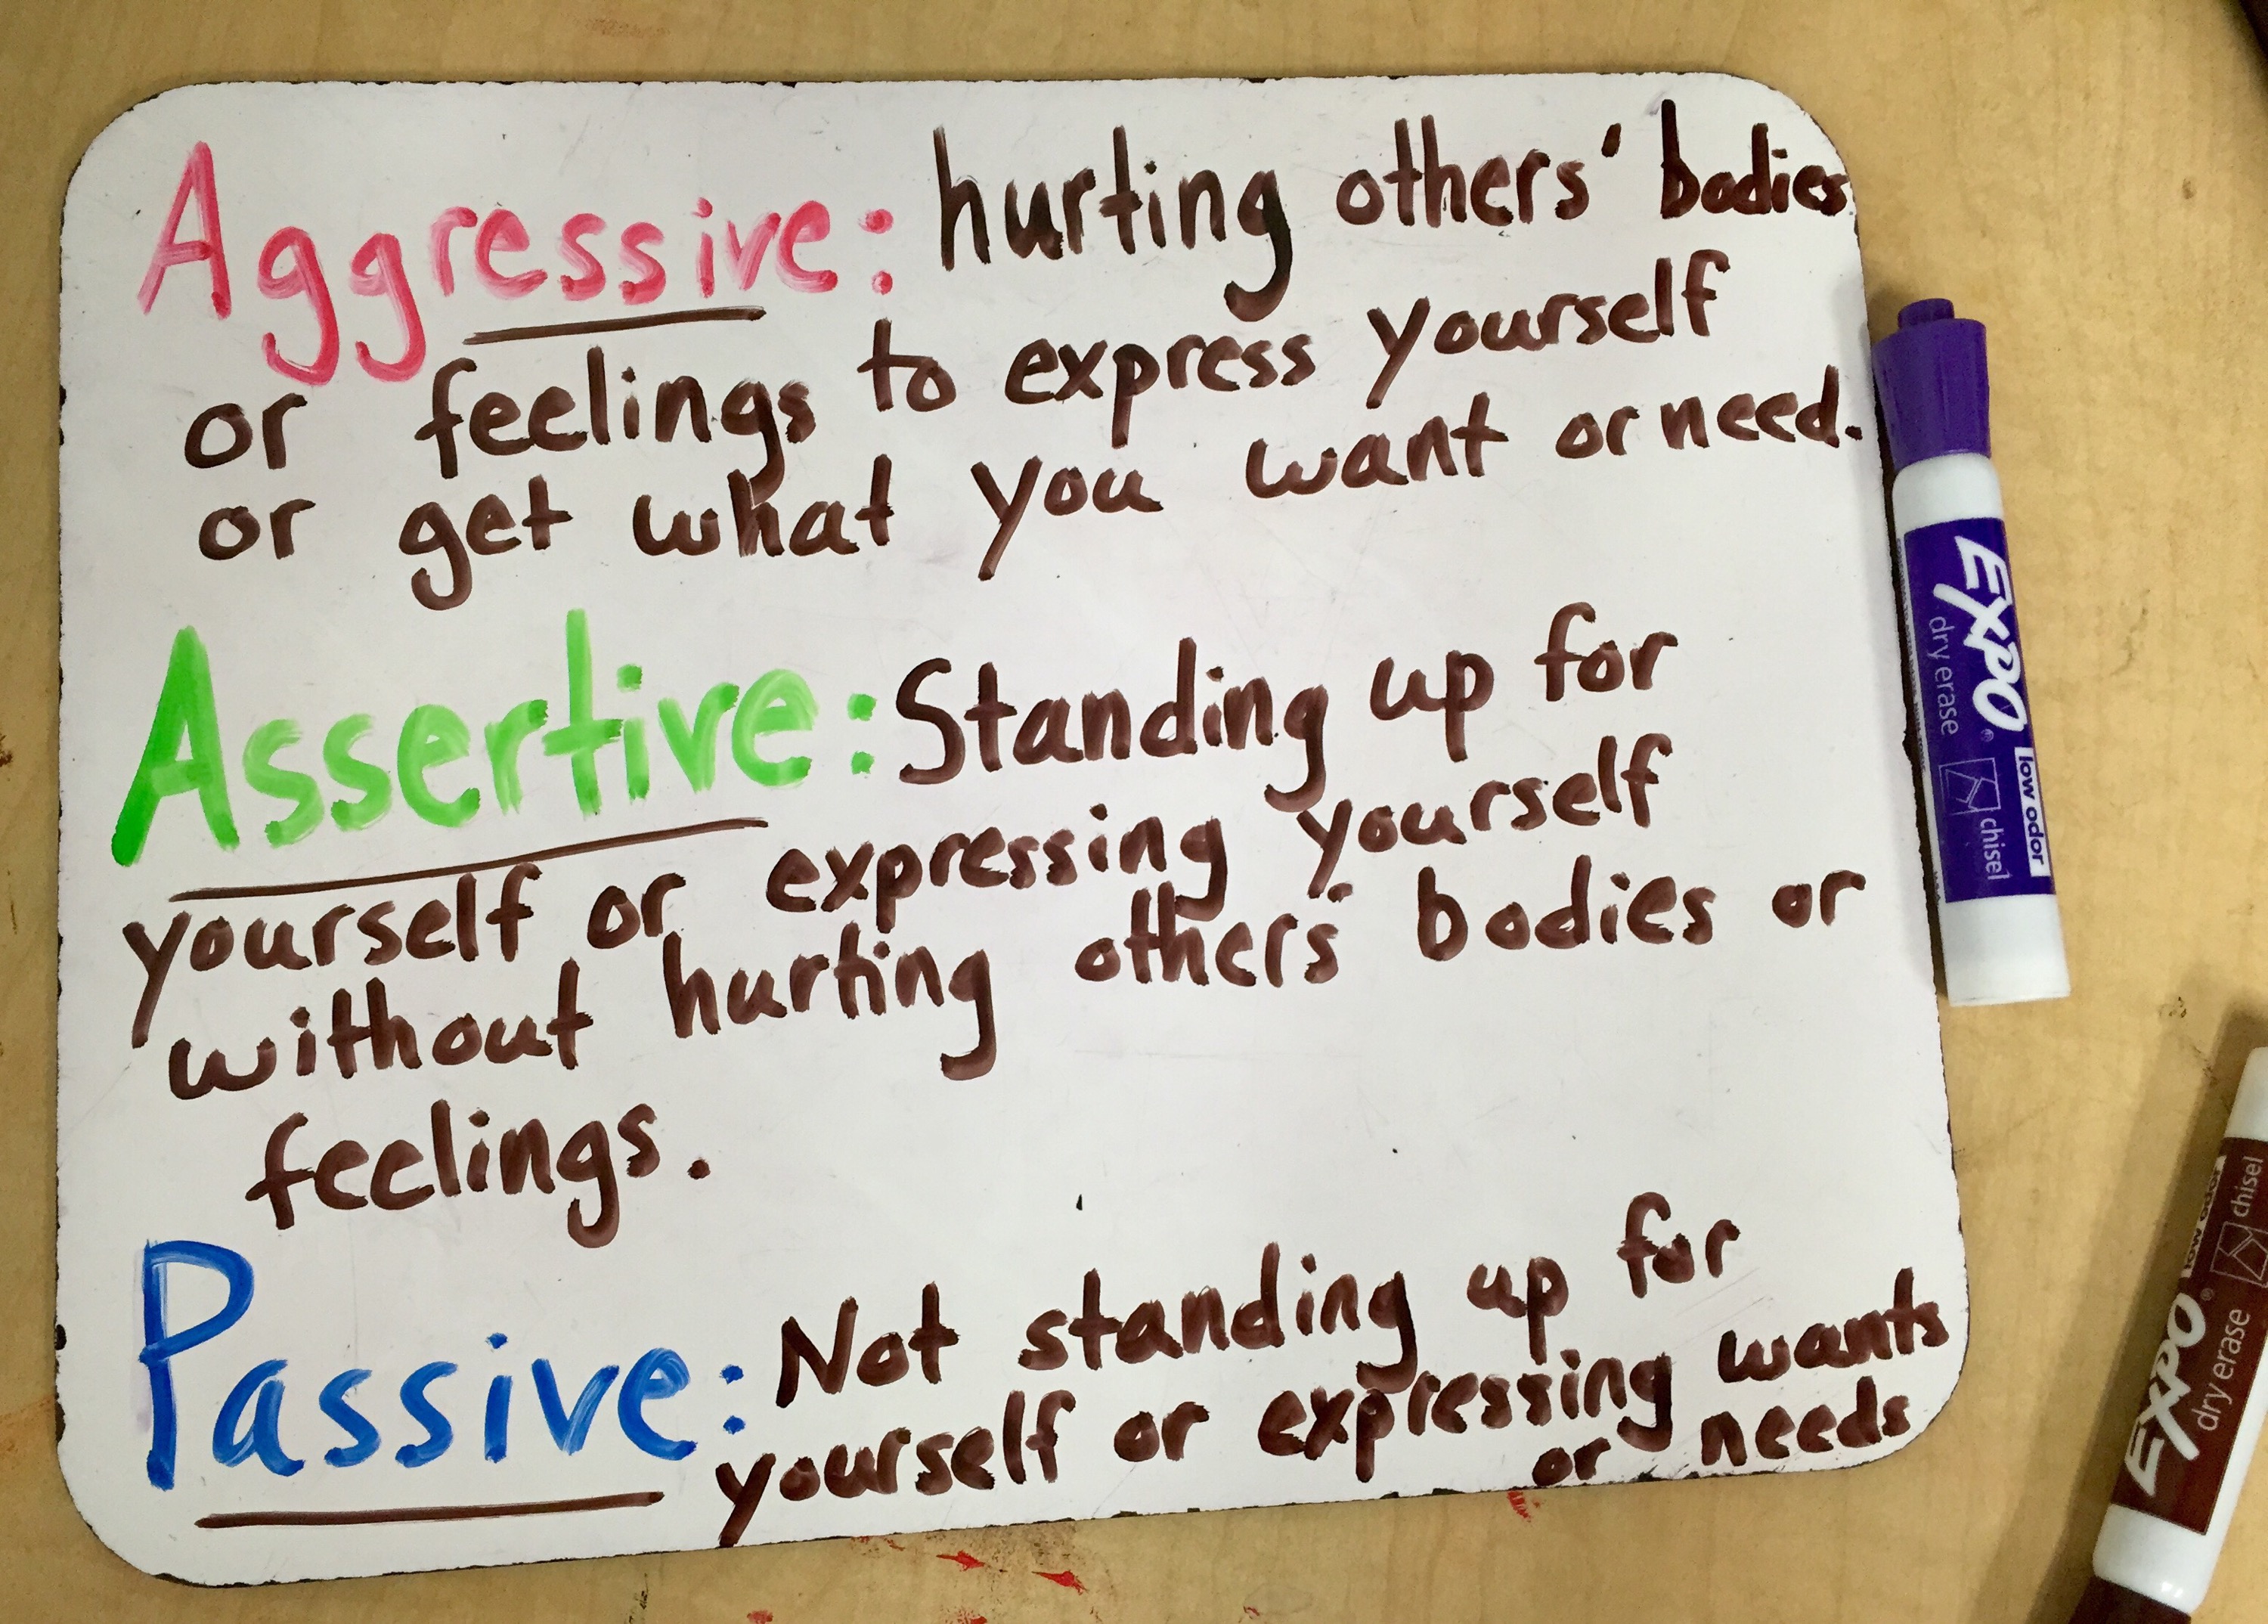 Aggressive: hurting others' bodies
or feelings to express yourself
or get what you want or need.
Assertive: Standing up for
yourself or expressing yourself
without hurting others' bodies or
feelings.
Passive: Not standing up for
yourself or expressing wants
or needs
EXPO®
dry erase
low odor
chisel
EXPO®
dry erase
low odor
chisel